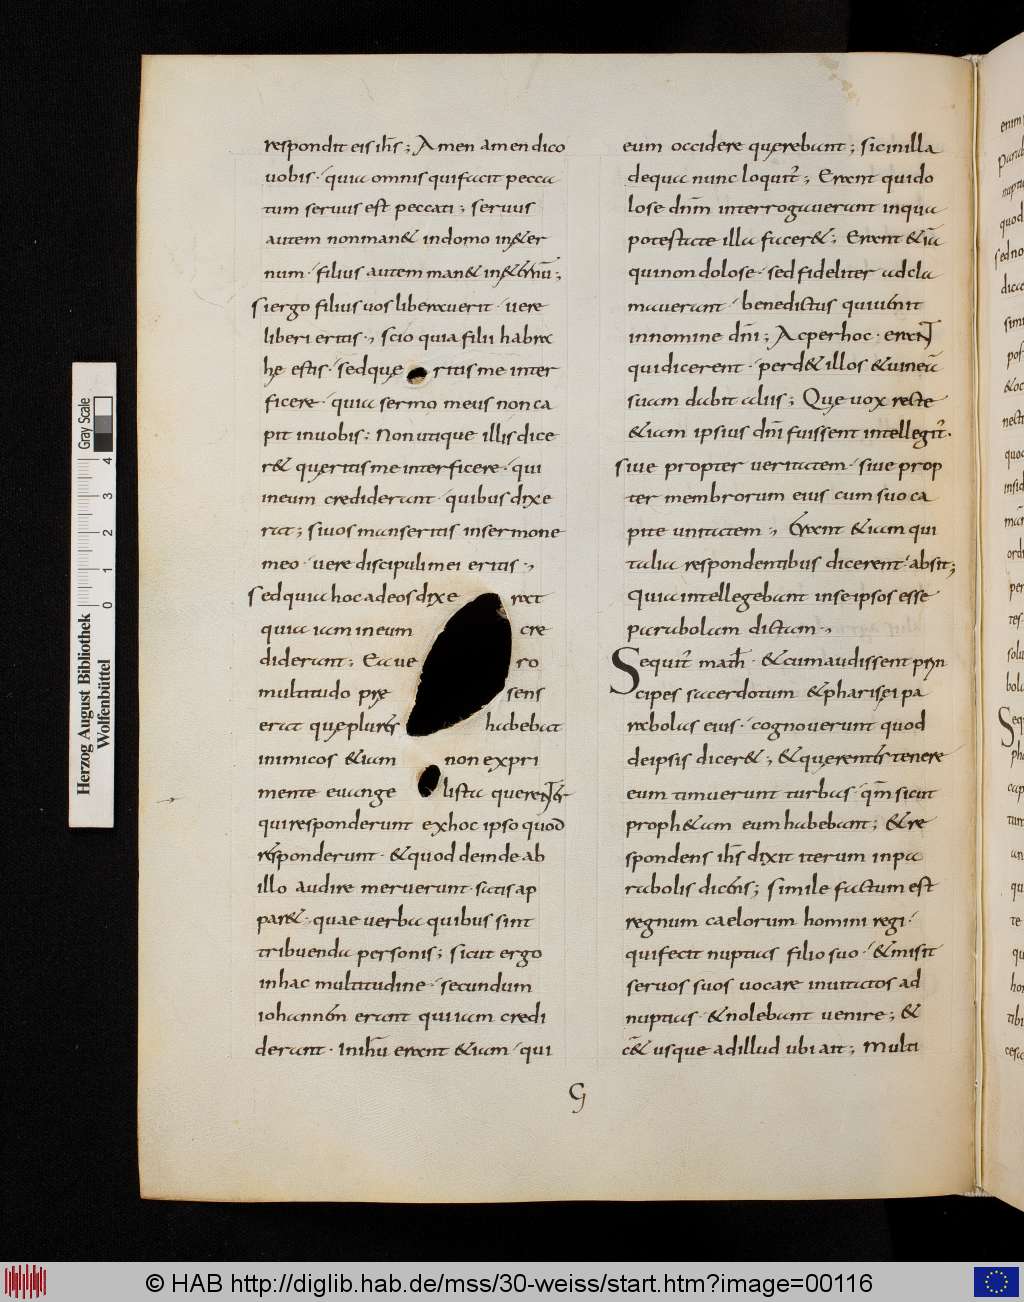 respondit eis ihs; Amen amen dico
uobis· quia omnis qui facit pecca
tum seruus est peccati; seruus
autem non man& in domo in&er
num· filius autem man& in&ernū;
si ergo filius uos liberauerit· uere
liberi eritis·, scio quia filii habra
hę estis· sed quę ritis me inter
ficere· quia sermo meus non ca
pit in uobis: Non utique illis dice
r& quęritis me interficere· qui
in eum crediderant· quibus dixe
rat; si uos manseritis in sermone
meo· uere discipuli mei eritis·,
Sed quia hoc ad eos dixe rat
quia iam in eum cre
diderant; Ea ue ro
multitudo prę sens
erat quę plures habebat
inimicos &iam non expri
mente euange lista querentes
qui responderunt ex hoc ipso quod
responderunt· & quod deinde ab
illo audire meruerunt· satis ap
par&· quae uerba quibus sint
tribuenda personis; sicut ergo
in hac multitudine· secundum
iohannen erant qui iam credi
derant· in ihū erant &iam· qui
eum occidere quęrebant; sic in illa
de qua nunc loquit̄; Erant qui do
lose dnm̄ interrogauerant in qua
potestate illa facer&; Erant &iā
qui non dolose· sed fideliter adcla
mauerant· benedictus qui uenit
in nomine dn̄i; Ac per hoc· erant
qui dicerent· perd& illos & uineā
suam dabit aliis; Quę uox recte
&iam ipsius dn̄i fuissent intellegit̄·
siue propter ueritatem· siue prop
ter membrorum eius cum suo ca
pite unitatem·, Erant &iam qui
talia respondentibus dicerent· absit;
Quia intellegebant in se ipsos esse
parabolam dictam·,
Sequit̄ math· & cum audissent prin
cipes sacerdotum & pharisęi pa
rabolas eius· cognouerunt quod
de ipsis dicer&; & quęrentes tenere
eum timuerunt turbas· qm̄ sicut
proph&am eum habebant; & re
spondens ihs dixit iterum in pa
rabolis dicens; simile factum est
regnum caelorum homini regi·
qui fecit nuptias filio suo· & misit
seruos suos uocare inuitatos ad
nuptias· & nolebant uenire; &
c& usque ad illud ubi ait; Multi
G
Herzog August Bibliothek
Wolfenbüttel
0 1 2 3 4
Gray Scale
© HAB http://diglib.hab.de/mss/30-weiss/start.htm?image=00116